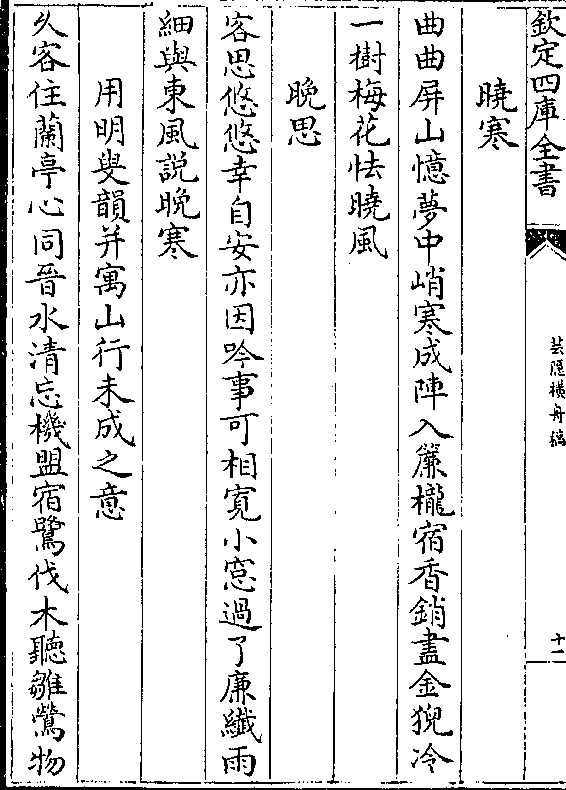 欽定四庫全書
芸隱橫舟稿
十一
曉寒
曲曲屏山憶夢中峭寒成陣入簾櫳宿香銷盡金猊冷
一樹梅花怯曉風
晚思
客思悠悠幸自安亦因吟事可相寛小窓過了廉纖雨
細與東風説晚寒
用明叟韻并寓山行未成之意
久客住蘭亭心同晉水清忘機盟宿鷺伐木聽雛鶯物